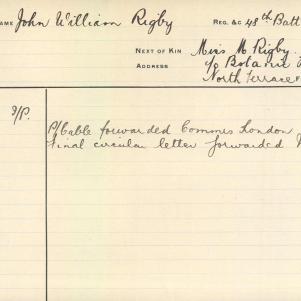 NAME John William Rigby REG. &C 48th Batt
NEXT OF KIN Miss M Rigby.
ADDRESS c/o Botanic
North Terrace
P/Cable forwarded Commns London
Final circular letter forwarded